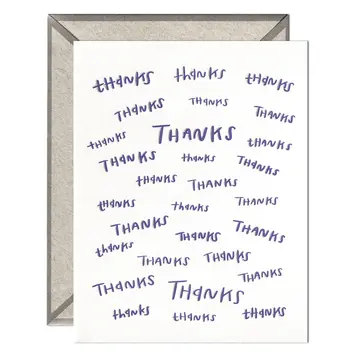 thanks thanks thanks
THANKS THANKS THANKS
thanks THANKS thanks
THANKS thanks THANKS
thanks THANKS
thanks thanks THANKS
THANKS THANKS THANKS
thanks THANKS
THANKS THANKS THANKS
thanks thanks thanks